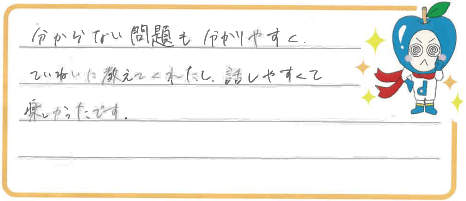 分からない問題も分かりやすく、
ていねいに教えてくれたし、話しやすくて
楽しかったです。